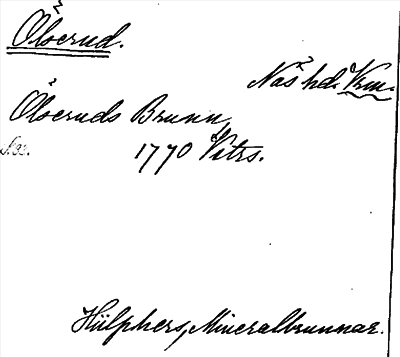 Ölserud.
Näs hd. Vrm.
Ölseruds Brunn
S. 32. 1770 Vitrs.
Hülphers, Mineralbrunnar.